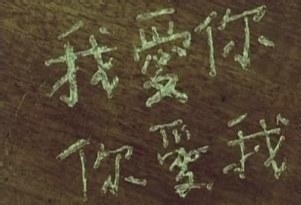 我愛你
你愛我